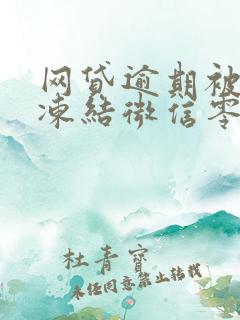 网贷逾期被
凍結微信零
杜青寶
未经同意禁止转载